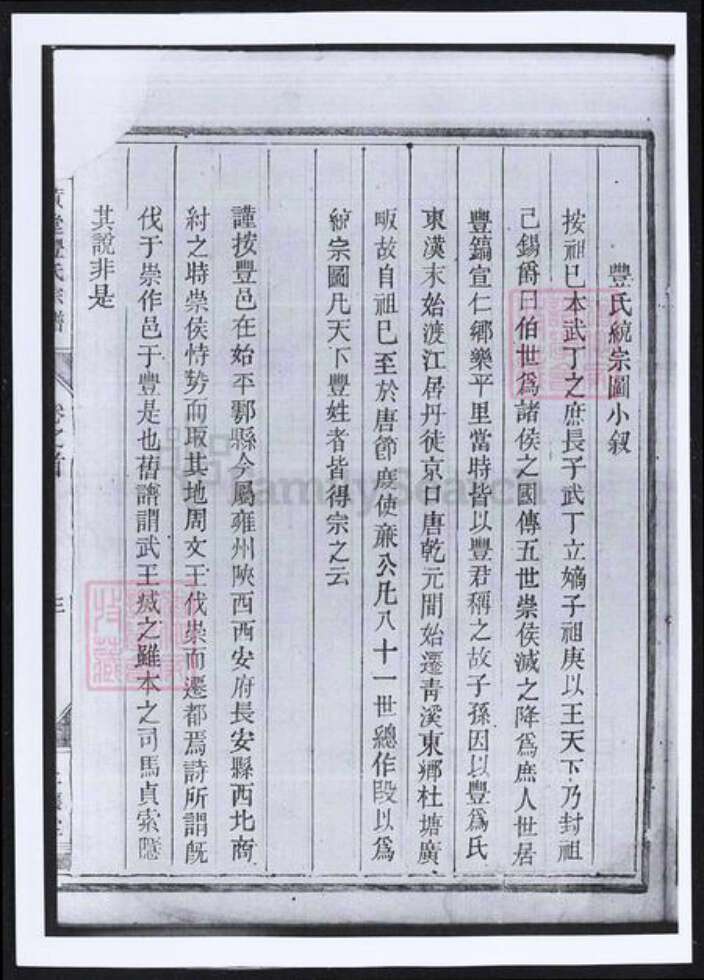 豐氏統宗圖小叙
按祖已本武丁之庶長子武丁立嫡子祖庚以王天下乃封祖
己錫爵曰伯世爲諸侯之國傳五世崇侯滅之降爲庶人世居
豐鎬宣仁鄉樂平里當時皆以豐君稱之故子孫因以豐爲氏
東漢末始渡江居丹徒京口唐乾元間始遷靑溪東鄉杜塘廣
畈故自祖已至於唐節度使 公凡八十一世總作段以爲
統宗圖凡天下豐姓者皆得宗之云
謹按豐邑在始平鄠縣今屬雍州陝西西安府長安縣西北商
紂之時崇侯恃勢而取其地周文王伐崇而遷都焉詩所謂旣
伐于崇作邑于豐是也舊譜謂武王滅之雖本之司馬貞索隱
其說非是
豐氏宗譜
卷之首
FamilySearch